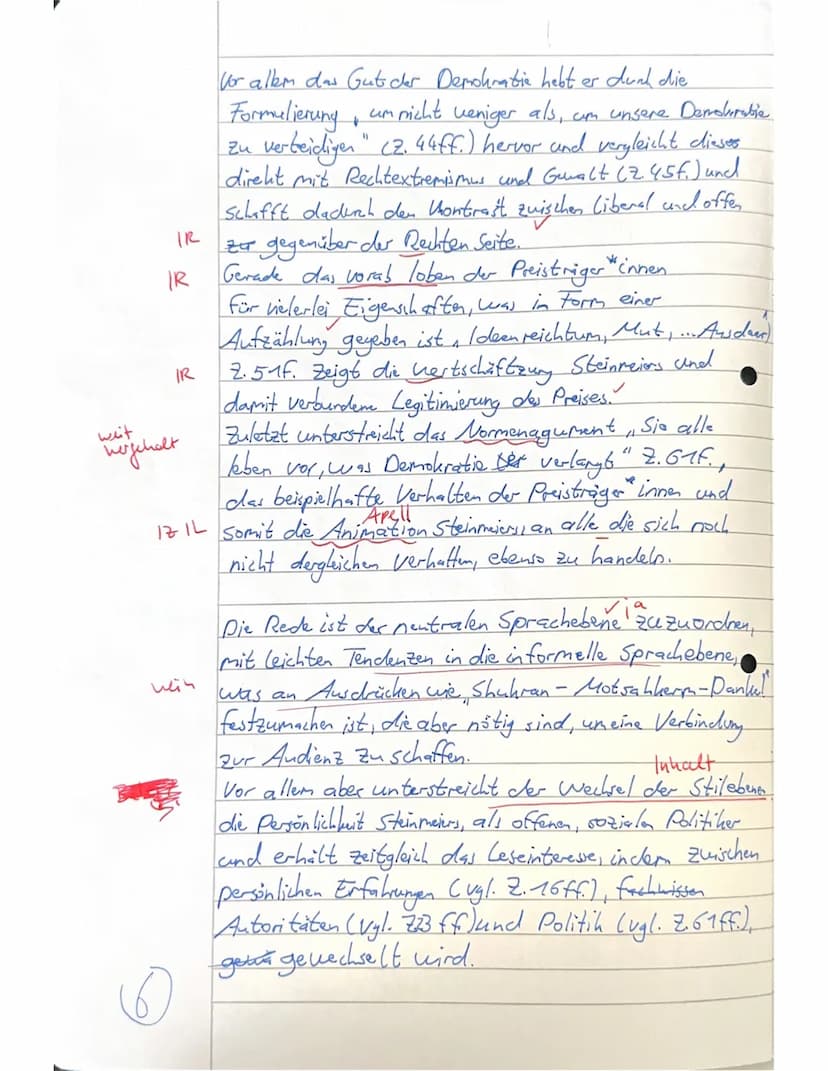 Vor allem das Gut der Demokratie hebt er durch die
Formulierung „um nicht weniger als, um unsere Demokratie
zu verteidigen" (Z. 44ff.) hervor und vergleicht dieses
direkt mit Rechtextremismus und Gewalt (Z. 45f.) und
schafft dadurch den Kontrast zwischen Liberal und offen
IR zur gegenüber der Rechten Seite.
IR Gerade das vorab loben der Preisträger*innen
für vielerlei Eigenschaften, was in Form einer
Aufzählung gegeben ist, (Ideenreichtum, Mut, ... Ausdauer)
IR Z. 51f. zeigt die Wertschäftzung Steinmeiers und
damit verbundene Legitimierung des Preises.
weit hergeholt Zuletzt unterstreicht das Normenagument „Sie alle
leben vor, was Demokratie verlangt" Z. 61f.,
das beispielhafte Verhalten der Preisträger*innen und
Apell
IZ IL somit die Animation Steinmeiers, an alle die sich noch
nicht dergleichen verhalten, ebenso zu handeln.
ja
Die Rede ist der neutralen Sprachebene zuzuordnen,
mit leichten Tendenzen in die informelle Sprachebene,
nein was an Ausdrücken wie „Shukran – Motsahkerm – Danke!"
festzumachen ist, die aber nötig sind, um eine Verbindung
zur Audienz zu schaffen.
Inhalt
Vor allem aber unterstreicht der Wechsel der Stilebenen
die Persönlichkeit Steinmeiers, als offenen, sozialen Politiker
und erhält zeitgleich das Leseinteresse, indem zwischen
persönlichen Erfahrungen (vgl. Z. 16ff.), fachwissen
Autoritäten (vgl. Z23 ff.) und Politik (vgl. Z. 61ff.),
gewechselt wird.
6